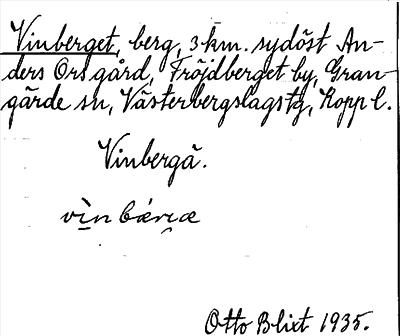 Vinberget, berg, 3 km. sydöst An-
ders Ors gård, Fröjdberget by, Gran-
gärde sn, Västerbergslags tg, Kopp l.
Vinbergä.
Otto Blixt 1935.